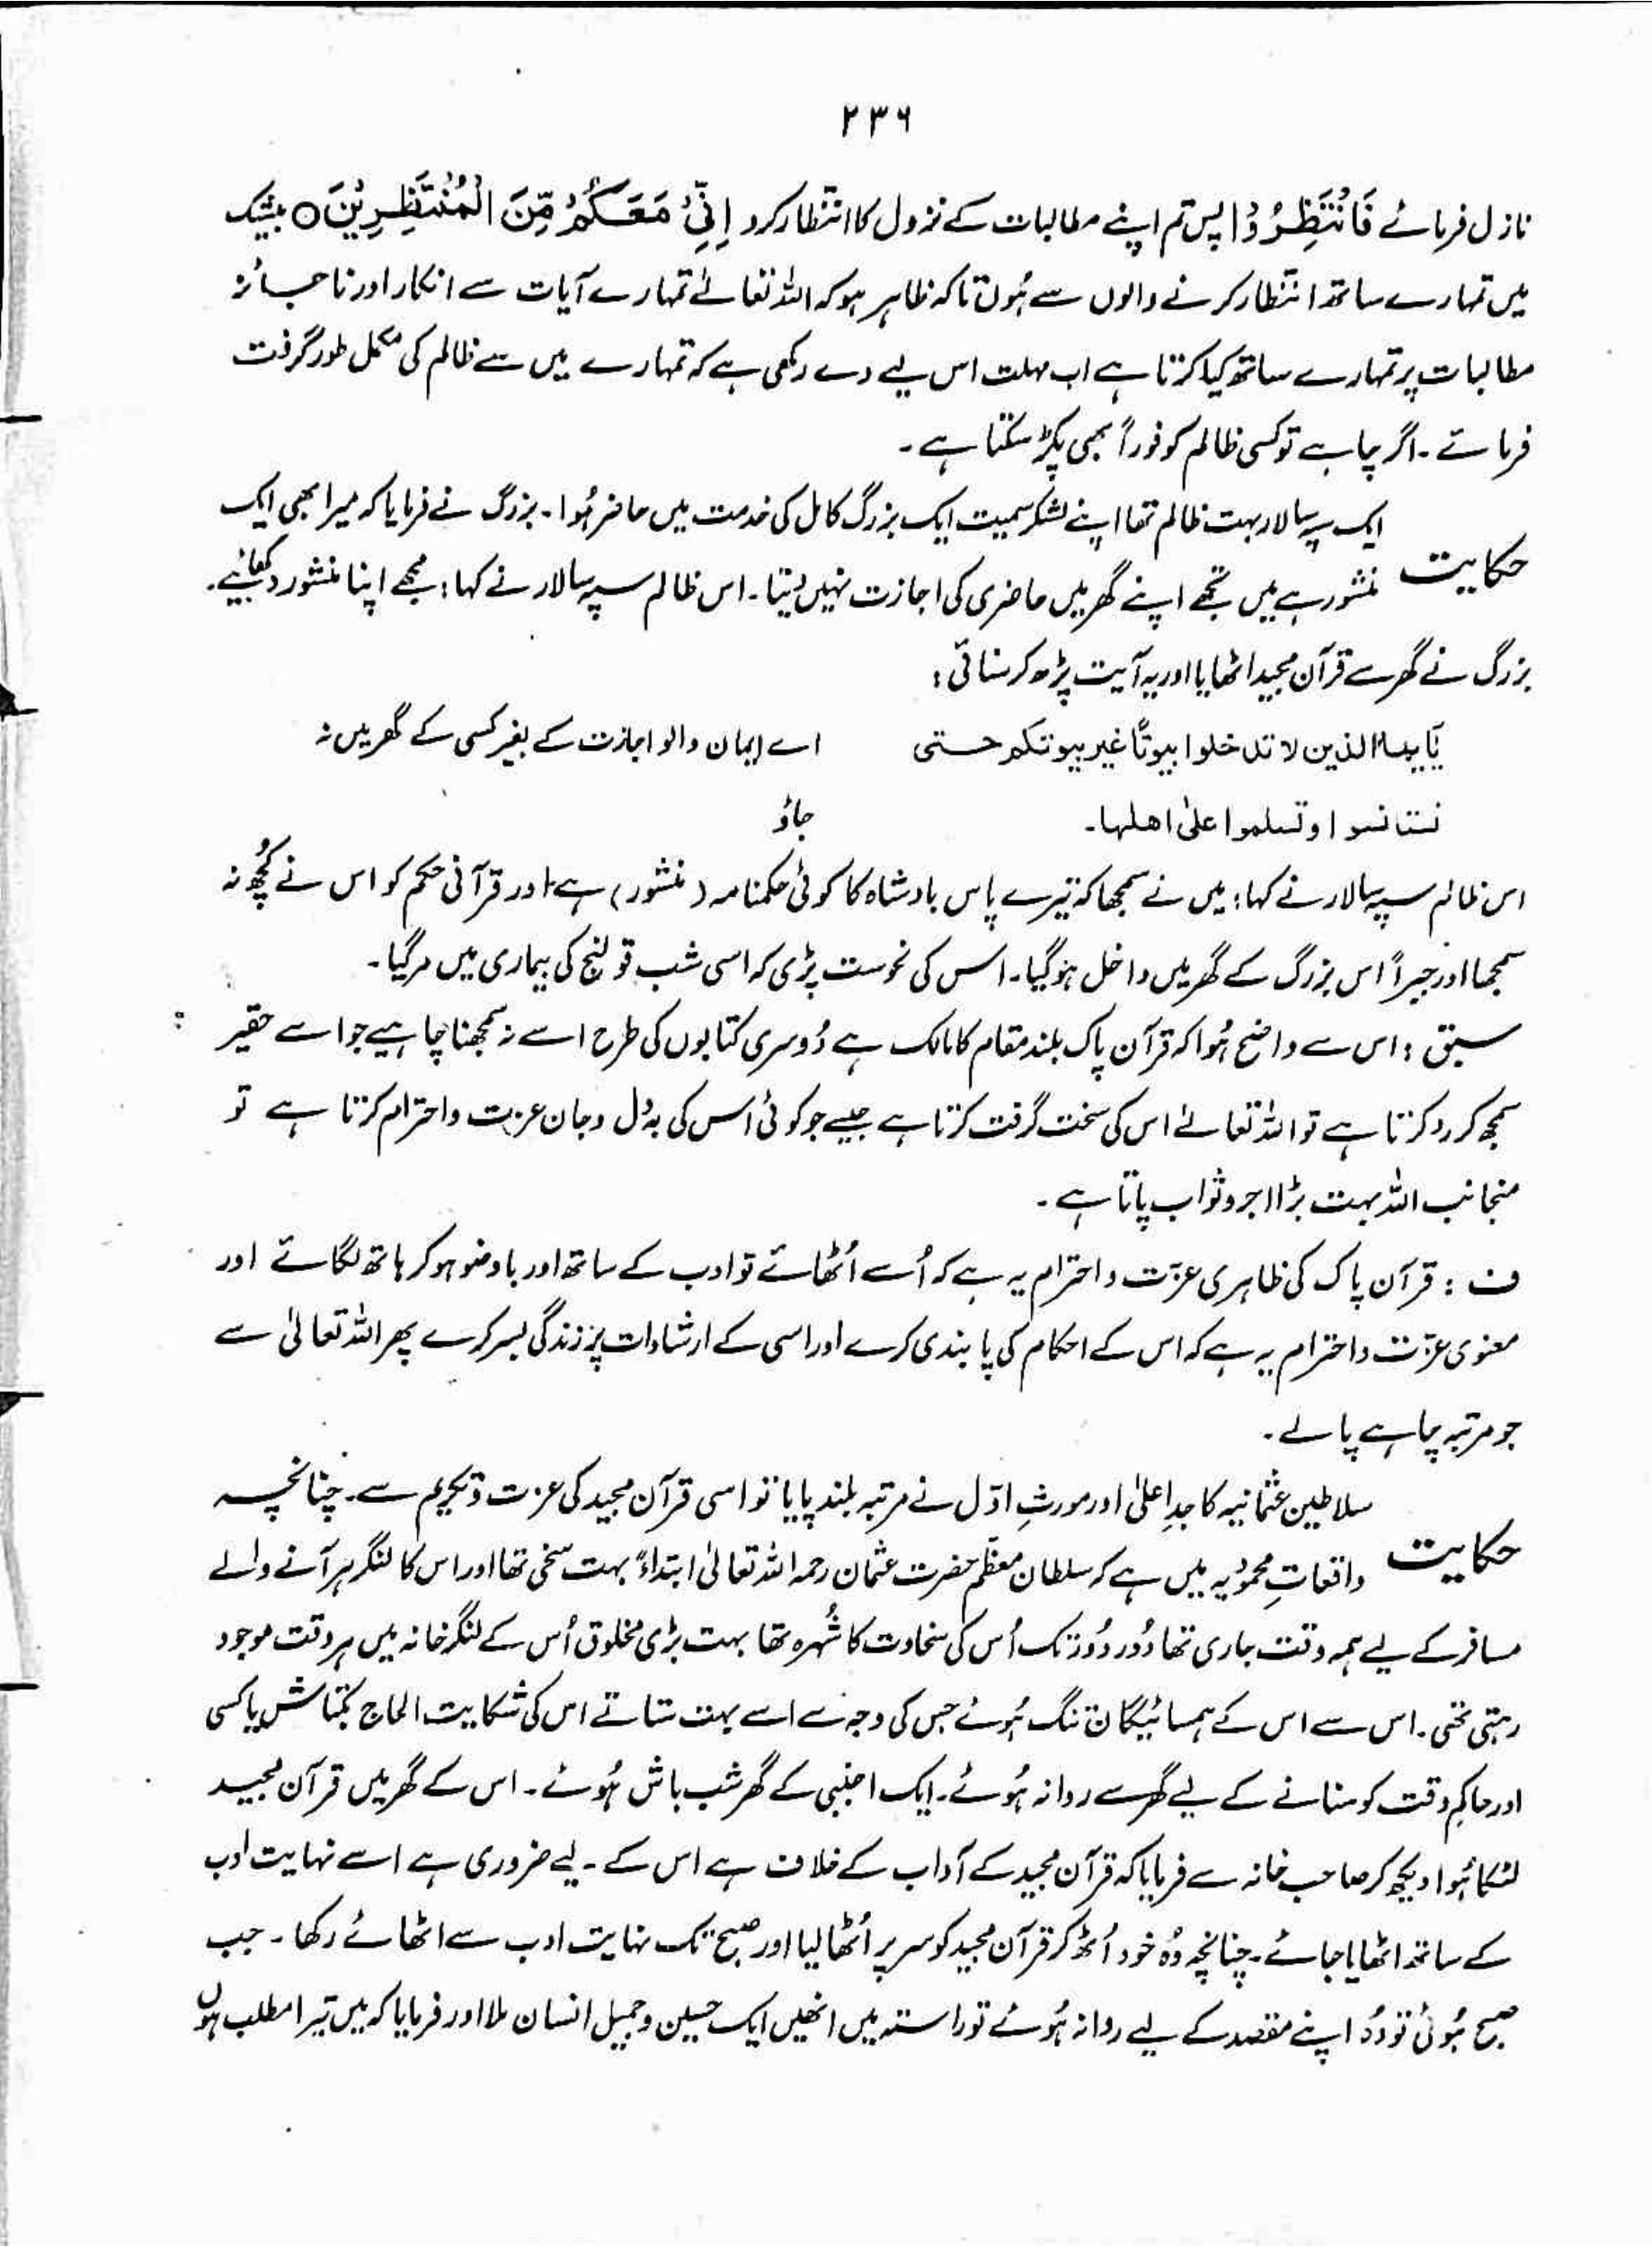 ۲۳۶
نازل فرمائے فَانْتَظِرُوْا پس تم اپنے مطالبات کے نزول کا انتظار کرو اِنِّیْ مَعَكُمْ مِّنَ الْمُنْتَظِرِیْنَ○ بیشک
میں تمہارے ساتھ انتظار کرنے والوں سے ہُوں تاکہ ظاہر ہو کہ اللہ تعالےٰ تمہارے آیات سے انکار اور ناجائز
مطالبات پر تمہارے ساتھ کیا کرتا ہے اب مہلت اس لیے دے رکھی ہے کہ تمہارے میں سے ظالم کی مکمل طور گرفت
فرمائے ۔ اگر چاہے تو کسی ظالم کو فوراً بھی پکڑ سکتا ہے ۔
ایک سپہ سالار بہت ظالم تھا اپنے لشکر سمیت ایک بزرگ کامل کی خدمت میں حاضر ہُوا ۔ بزرگ نے فرمایا کہ میرا بھی ایک
حکایت منشور ہے میں تجھے اپنے گھر میں حاضری کی اجازت نہیں دیتا ۔ اس ظالم سپہ سالار نے کہا : مجھے اپنا منشور دکھائیے ۔
بزرگ نے گھر سے قرآن مجید اٹھایا اور یہ آیت پڑھ کر سنائی :
یٰٓایھا الذین لا تدخلوا بیوتًا غیر بیوتکم حتی اے ایمان والو اجازت کے بغیر کسی کے گھر میں نہ
نستانسوا وتسلموا علیٰ اھلھا ۔ جاؤ
اس ظالم سپہ سالار نے کہا : میں نے سمجھا کہ تیرے پاس بادشاہ کا کوئی حکمنامہ ( منشور ) ہے اور قرآنی حکم کو اس نے کُچھ نہ
سمجھا اور جبراً اس بزرگ کے گھر میں داخل ہو گیا ۔ اس کی نحوست پڑی کہ اسی شب قولنج کی بیماری میں مر گیا ۔
سبق : اس سے واضح ہُوا کہ قرآن پاک بلند مقام کا مالک ہے دُوسری کتابوں کی طرح اسے نہ سمجھنا چاہیے جو اسے حقیر
سمجھ کر رد کرتا ہے تو اللہ تعالےٰ اس کی سخت گرفت کرتا ہے جیسے جو کوئی اس کی بہ دل و جان عزت و احترام کرتا ہے تو
منجانب اللہ بہت بڑا اجر و ثواب پاتا ہے ۔
ف : قرآن پاک کی ظاہری عزّت و احترام یہ ہے کہ اُسے اُٹھائے تو ادب کے ساتھ اور باوضو ہو کر ہاتھ لگائے اور
معنوی عزّت و احترام یہ ہے کہ اس کے احکام کی پابندی کرے اور اسی کے ارشادات پر زندگی بسر کرے پھر اللہ تعالیٰ سے
جو مرتبہ چاہے پا لے ۔
سلاطین عثمانیہ کا جدِ اعلیٰ اور مورثِ اوّل نے مرتبہ بلند پایا تو اسی قرآن مجید کی عزت و تکریم سے ۔ چنانچہ
حکایت واقعاتِ محمودیہ میں ہے کہ سلطان معظم حضرت عثمان رحمہ اللہ تعالیٰ ابتداءً بہت سخی تھا اور اس کا لنگر ہر آنے والے
مسافر کے لیے ہمہ وقت جاری تھا دُور دُور تک اُس کی سخاوت کا شُہرہ تھا بہت بڑی مخلوق اُس کے لنگر خانہ میں ہر وقت موجود
رہتی تھی ۔ اس سے اس کے ہمسائیگان تنگ ہُوئے جس کی وجہ سے اسے بہت ستاتے اس کی شکایت الحاج بکتاش یا کسی
اور حاکمِ وقت کو سنانے کے لیے گھر سے روانہ ہُوئے ۔ ایک اجنبی کے گھر شب باش ہُوئے ۔ اس کے گھر میں قرآن مجید
لٹکا ہُوا دیکھ کر صاحب خانہ سے فرمایا کہ قرآن مجید کے آداب کے خلاف ہے اس کے ۔ لیے ضروری ہے اسے نہایت ادب
کے ساتھ اٹھایا جائے ۔ چنانچہ وُہ خود اُٹھ کر قرآن مجید کو سر پر اُٹھا لیا اور صبح تک نہایت ادب سے اٹھائے رکھا ۔ جب
صبح ہُوئی تو وُہ اپنے مقصد کے لیے روانہ ہُوئے تو راستہ میں انھیں ایک حسین و جمیل انسان ملا اور فرمایا کہ میں تیرا مطلب ہوں